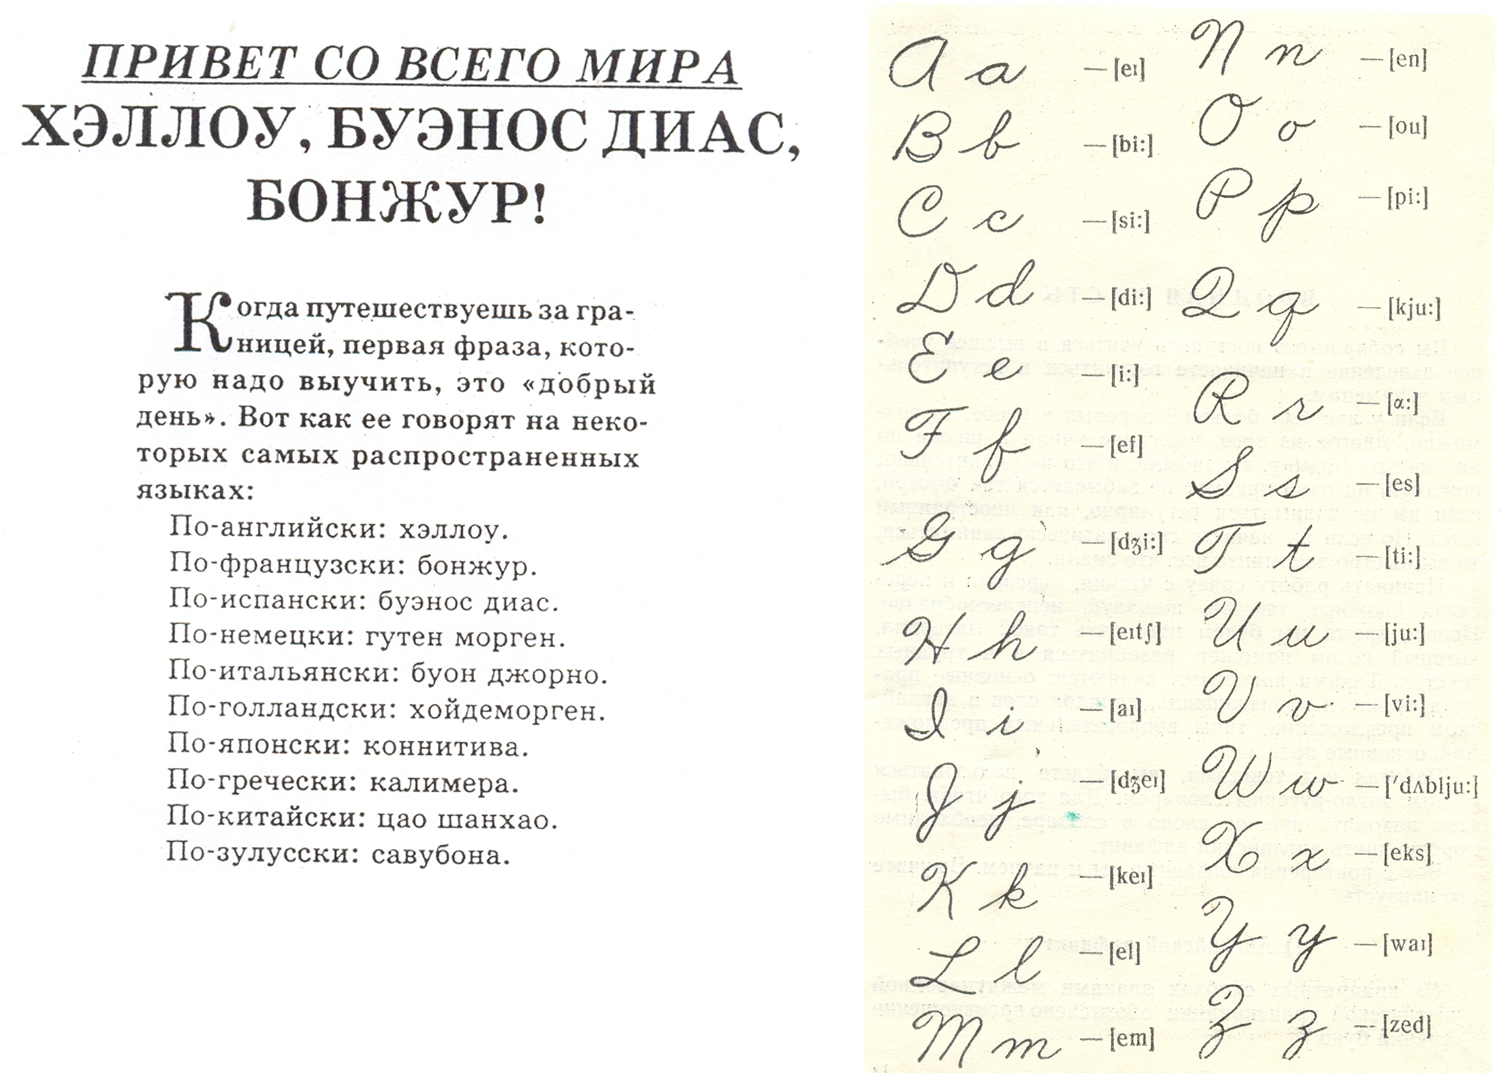 ПРИВЕТ СО ВСЕГО МИРА
ХЭЛЛОУ, БУЭНОС ДИАС,
БОНЖУР!
Когда путешествуешь за гра-
ницей, первая фраза, кото-
рую надо выучить, это «добрый
день». Вот как ее говорят на неко-
торых самых распространенных
языках:
По-английски: хэллоу.
По-французски: бонжур.
По-испански: буэнос диас.
По-немецки: гутен морген.
По-итальянски: буон джорно.
По-голландски: хойдеморген.
По-японски: коннитива.
По-гречески: калимера.
По-китайски: цао шанхао.
По-зулусски: савубона.
A a — [eı]
B b — [bi:]
C c — [si:]
D d — [di:]
E e — [i:]
F f — [ef]
G g — [dʒi:]
H h — [eıtʃ]
I i — [aı]
J j — [dʒeı]
K k — [keı]
L l — [el]
M m — [em]
N n — [en]
O o — [ou]
P p — [pi:]
Q q — [kju:]
R r — [ɑ:]
S s — [es]
T t — [ti:]
U u — [ju:]
V v — [vi:]
W w — [ʹdʌblju:]
X x — [eks]
Y y — [waı]
Z z — [zed]